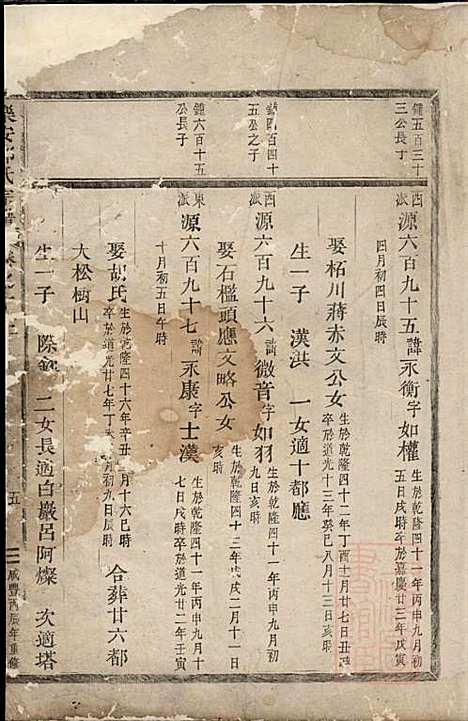 鍾五百三十
三公長子
西派
源六百九十五諱永衡字如權
生於乾隆四十一年丙申九月初
五日戌時卒於嘉慶廿三年戊寅
四月初四日辰時
娶栢川蔣赤文公女
生於乾隆四十二年丁酉十二月廿七日丑時
卒於道光十三年癸巳八月十三日亥時
生一子 漢洪 一女適十都應
百四十
五公之子
西派
源六百九十六諱微音字如羽
生於乾隆四十一年丙申九月初
九日亥時
娶石槛頭應文略公女
生於乾隆四十三年戊戌二月十一日
亥時
鍾六百十五
公長子
東派
源六百九十七諱永康字士漢
生於乾隆四十一年丙申九月十
七日戌時卒於道光廿二年壬寅
十月初五日午時
娶胡氏
生於乾隆四十六年辛丑 月十六巳時
卒於道光廿七年丁 月初九日辰時
合葬廿六都
大松樹山
生一子 二女長適白巖呂阿燦 次適塔
樂安 氏
五
咸豐丙辰年重修